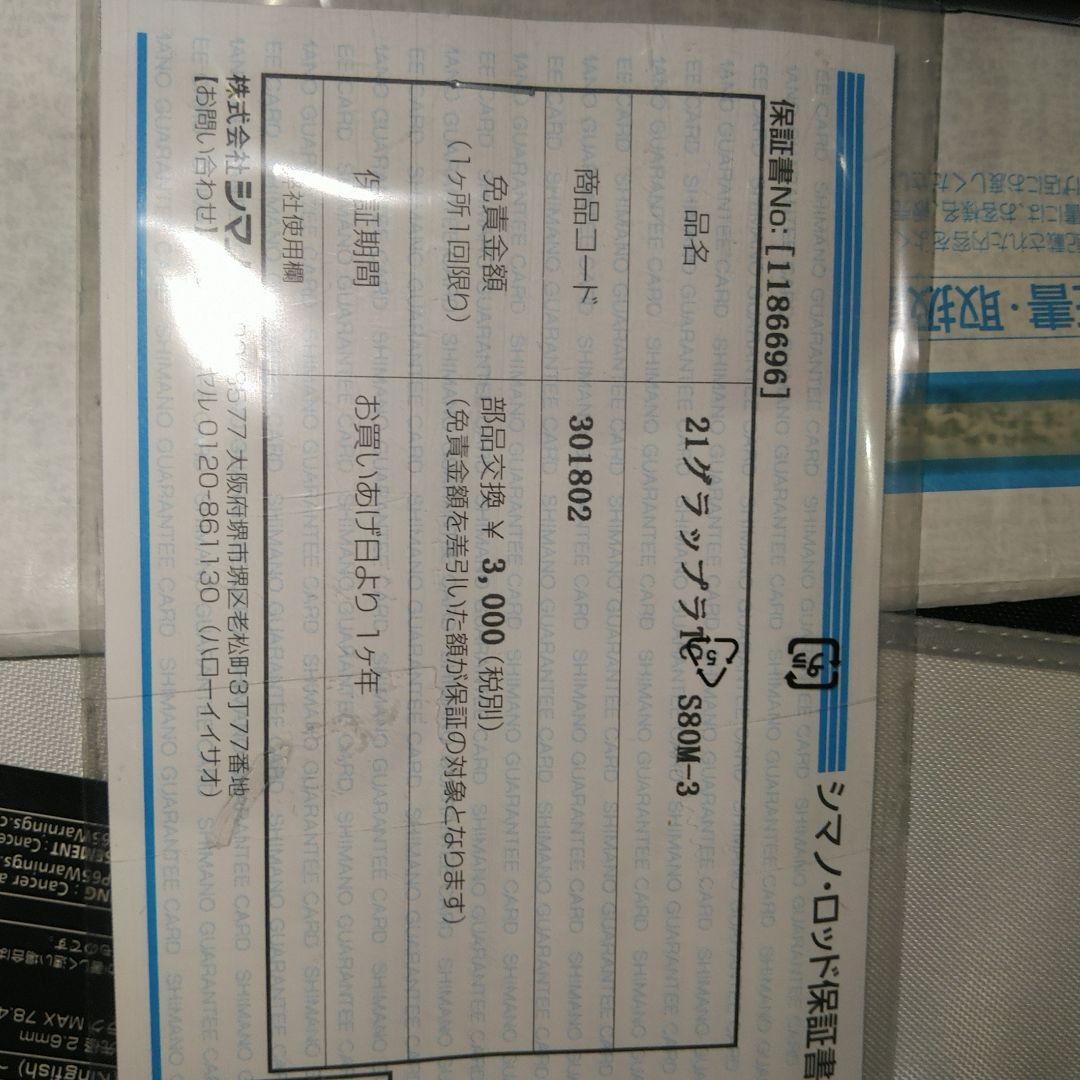 シマノ・ロッド保証書
保証書No:[1186696]
品名 21グラップラTC S80M-3
商品コード 301802
免責金額 部品交換 ¥ 3,000(税別)
(1ヶ所1回限り) (免責金額を差引いた額が保証の対象となります)
保証期間 お買いあげ日より 1ヶ年
社使用欄
株式会社シマ 8577 大阪府堺市堺区老松町3丁77番地
【お問い合わせ】 ヤル 0120-861130 (ハローイイサオ)
書・取扱
記載された内容を
書には、お客様名、販売
け店にお渡しくださ
SHIMANO GUARANTEE CARD
NG : Cancer a
P65Warnings.c
EMENT : Cance
65Warnings.c
MAX 78.4
2.6mm
ingfish)